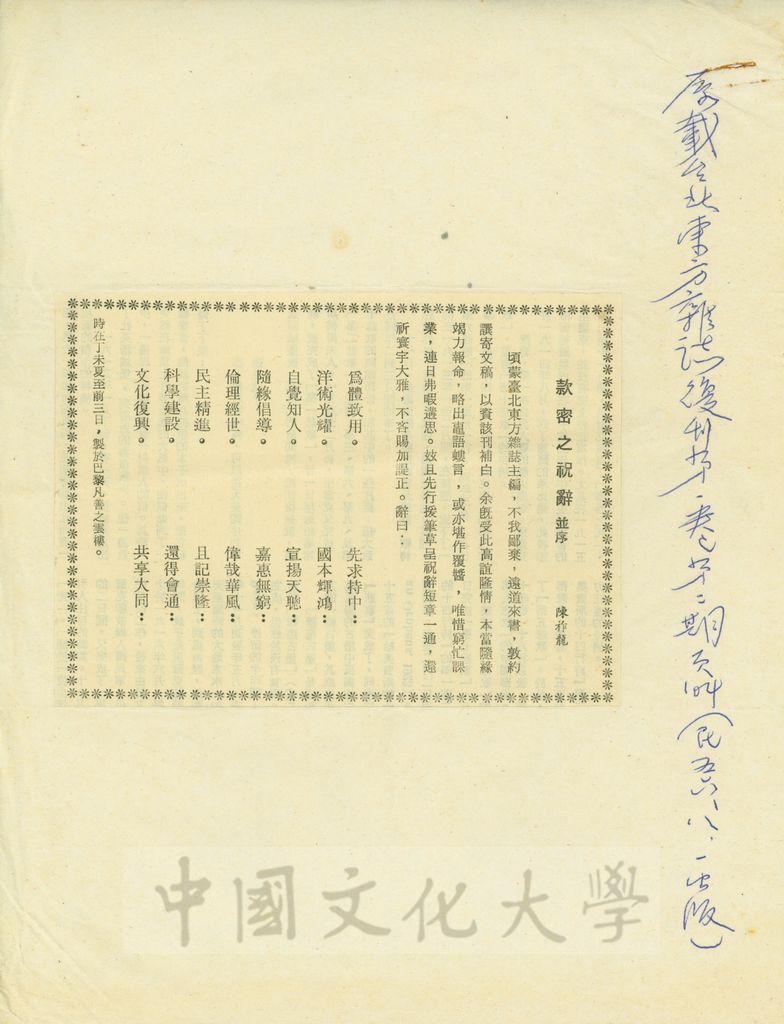 原載台北東方雜誌復刊第一卷第二期頁104(民五六、八、一出版)
款密之祝辭 並序
陳祚龍
頃蒙臺北東方雜誌主編,不我鄙棄,遠道來書,敦約
讓寄文稿,以資該刊補白。余旣受此高誼隆情,本當隨緣
竭力報命,略出蕙語螻言,或亦堪作覆醬,唯惜窮忙課
業,連日弗暇邊思。玆且先行援筆草呈祝辭短章一通,還
祈寰宇大雅,不吝賜加諟正。辭曰:
爲體致用。 先求持中:
洋術光耀。 國本輝鴻:
自覺知人。 宣揚天聰:
隨緣倡導。 嘉惠無窮:
倫理經世。 偉哉華風:
民主精進。 且記崇隆:
科學建設。 還得會通:
文化復興。 共享大同:
時在丁未夏至前三日,製於巴黎凡善之雲樓。
中國文化大學